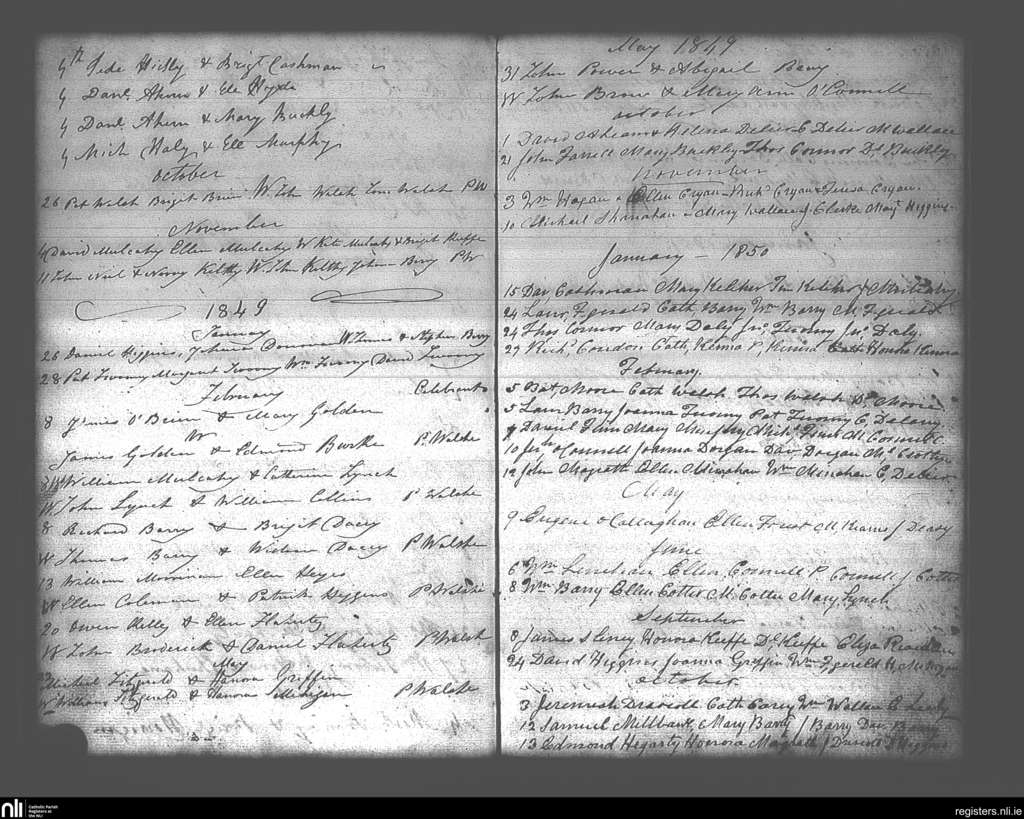 4th Jede Hickey & Brigt Cashman
4 Danl Ahern & Ele Hyde
4 Danl Ahern & Mary Buckly
4 Mich Haly & Ele Murphy
October
26 Pat Walsh Brigit Brien W. John Walsh Walsh PW
November
David Mulcahy Ellen Mulcahy W Kate Mulcahy & Brigit Keeffe
11 John Neil & Nancy Kelthy W. John Kelthy John Berry PW
1849
January
26 Daniel Higgins, Johanna Donovan W. James & Stephen Barry
28 Pat Twomy Margaret Twomy Wm Twomy David Twomy
February Celebrant
8 James O'Brien & Mary Golden
W
James Golden & Edmond Burke P. Walshe
William Mulcahy & Catherine Lynch
W John Lynch & William Collins P Walshe
8 Richard Barry & Brigit Dacey
W Thomas Barry & William Dacey P Walshe
13 William Morrisson Ellen Heyes
W Ellen Coleman & Patrick Higgins P Walshe
20 Owen Kelly & Ellen Flaherty
W John Broderick & Daniel Flaherty P Walsh
May
Michael Fitzgerald & Hanora Griffin
W William Fitzgerald & Hanora Millerigan P Walshe
May 1849
31 John Power & Abigail Barry
W John Brown & Mary Ann O'Connell
October
1 David Ahearn & Helena Delier E Delier M Wallace
21 John Farrell Mary Buckley Thos Connor D. Buckley
November
3 Wm Hogan & Ellen Cryan Mich. Cryan & Teresa Cryan.
10 Michael Shanahan & Mary Wallace J. Clarke Mary Higgins
January - 1850
15 Dav Cashman Mary Keliher Tim Keliher &
24 Laur. Fgerald Cath Barry Wm Barry M. Fgerald
24 Thos Connor Mary Daly Jno Twomy Jno Daly
29 Rich. Condon Cath, Kenna P, Kenna Honora Kenna
February.
5 Bat, Moore Cath Welsh Thos Welsh D. Moore
5 Laur Barry Joanna Twomy Pat Twomy C Delany
7 Daniel Flinn Mary Murphy Mich. M. Connell
10 Connell Joanna Dorgan Dav Dorgan
12 John Magrath Ellen Minahan Wm Minahan E, Delier
May
9 Eugene O Callaghan Ellen Frost M, Kearns J Deasy
June
6 Wm Linehan Ellen, Connell P. Connell J Cotter
8 Wm Barry Ellen Cotter M. Cotter Mary Lynch
September
8 James Leney Honora Keeffe D. Keeffe Eliza Reardon
24 David Higgins Joanna Griffin Wm Fgerald H, Millerigan
October
3 Jeremiah Driscoll Cath Carey Wm Wallace E Leahy
12 Samuel Millbank, Mary Barry J Barry Dav Barry
13 Edmond Hegarty Honora Magrath J Higgins
nli
Catholic Parish
Registers at
the NLI
registers.nli.ie